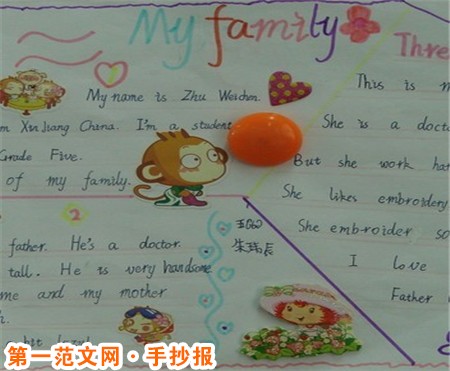 My family
1
My name is Zhu Weichen.
Xin Jiang China. I'm a student
Grade Five.
of my family.
2
father. He's a doctor.
tall. He is very handsome
me and my mother
Three
This is
She is a
But she work
She likes embroidery
She embroider
I love
Father
第一范文网·手抄报